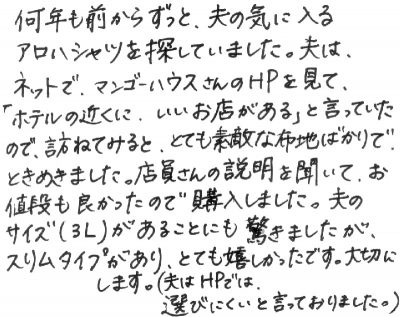 何年も前からずっと、夫の気に入る
アロハシャツを探していました。夫は、
ネットで、マンゴーハウスさんのHPを見て、
「ホテルの近くに、いいお店がある」と言っていた
ので、訪ねてみると、とても素敵な布地ばかりで
ときめきました。店員さんの説明を聞いて、お
値段も良かったので購入しました。夫の
サイズ(3L)があることにも驚きましたが、
スリムタイプがあり、とても嬉しかったです。大切に
します。(夫はHPでは、
選びにくいと言っておりました。)